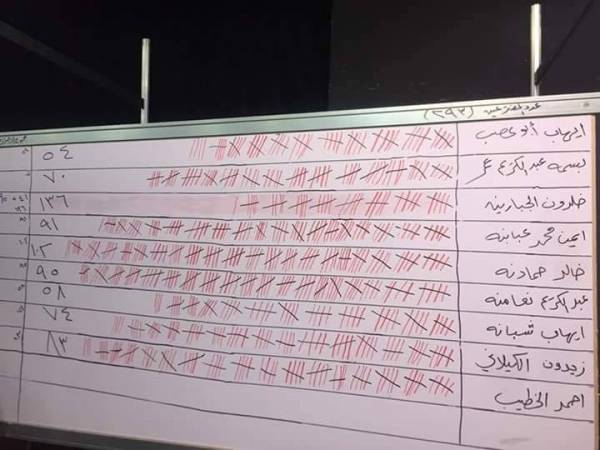 (٢٩٣)
ايهاب أبو ٥٤
بسمه عبد الكريم عمر ٧٠
خلدون الجبارينه ١٣٦
ايمن محمد عبابنه ٩١
خالد حمادنه ١٠٢
عبد الكريم نعامنه ٩٥
ايهاب شبانه ٥٨
زيدون الكيلاني ٧٤
احمد الخطيب ٨٣